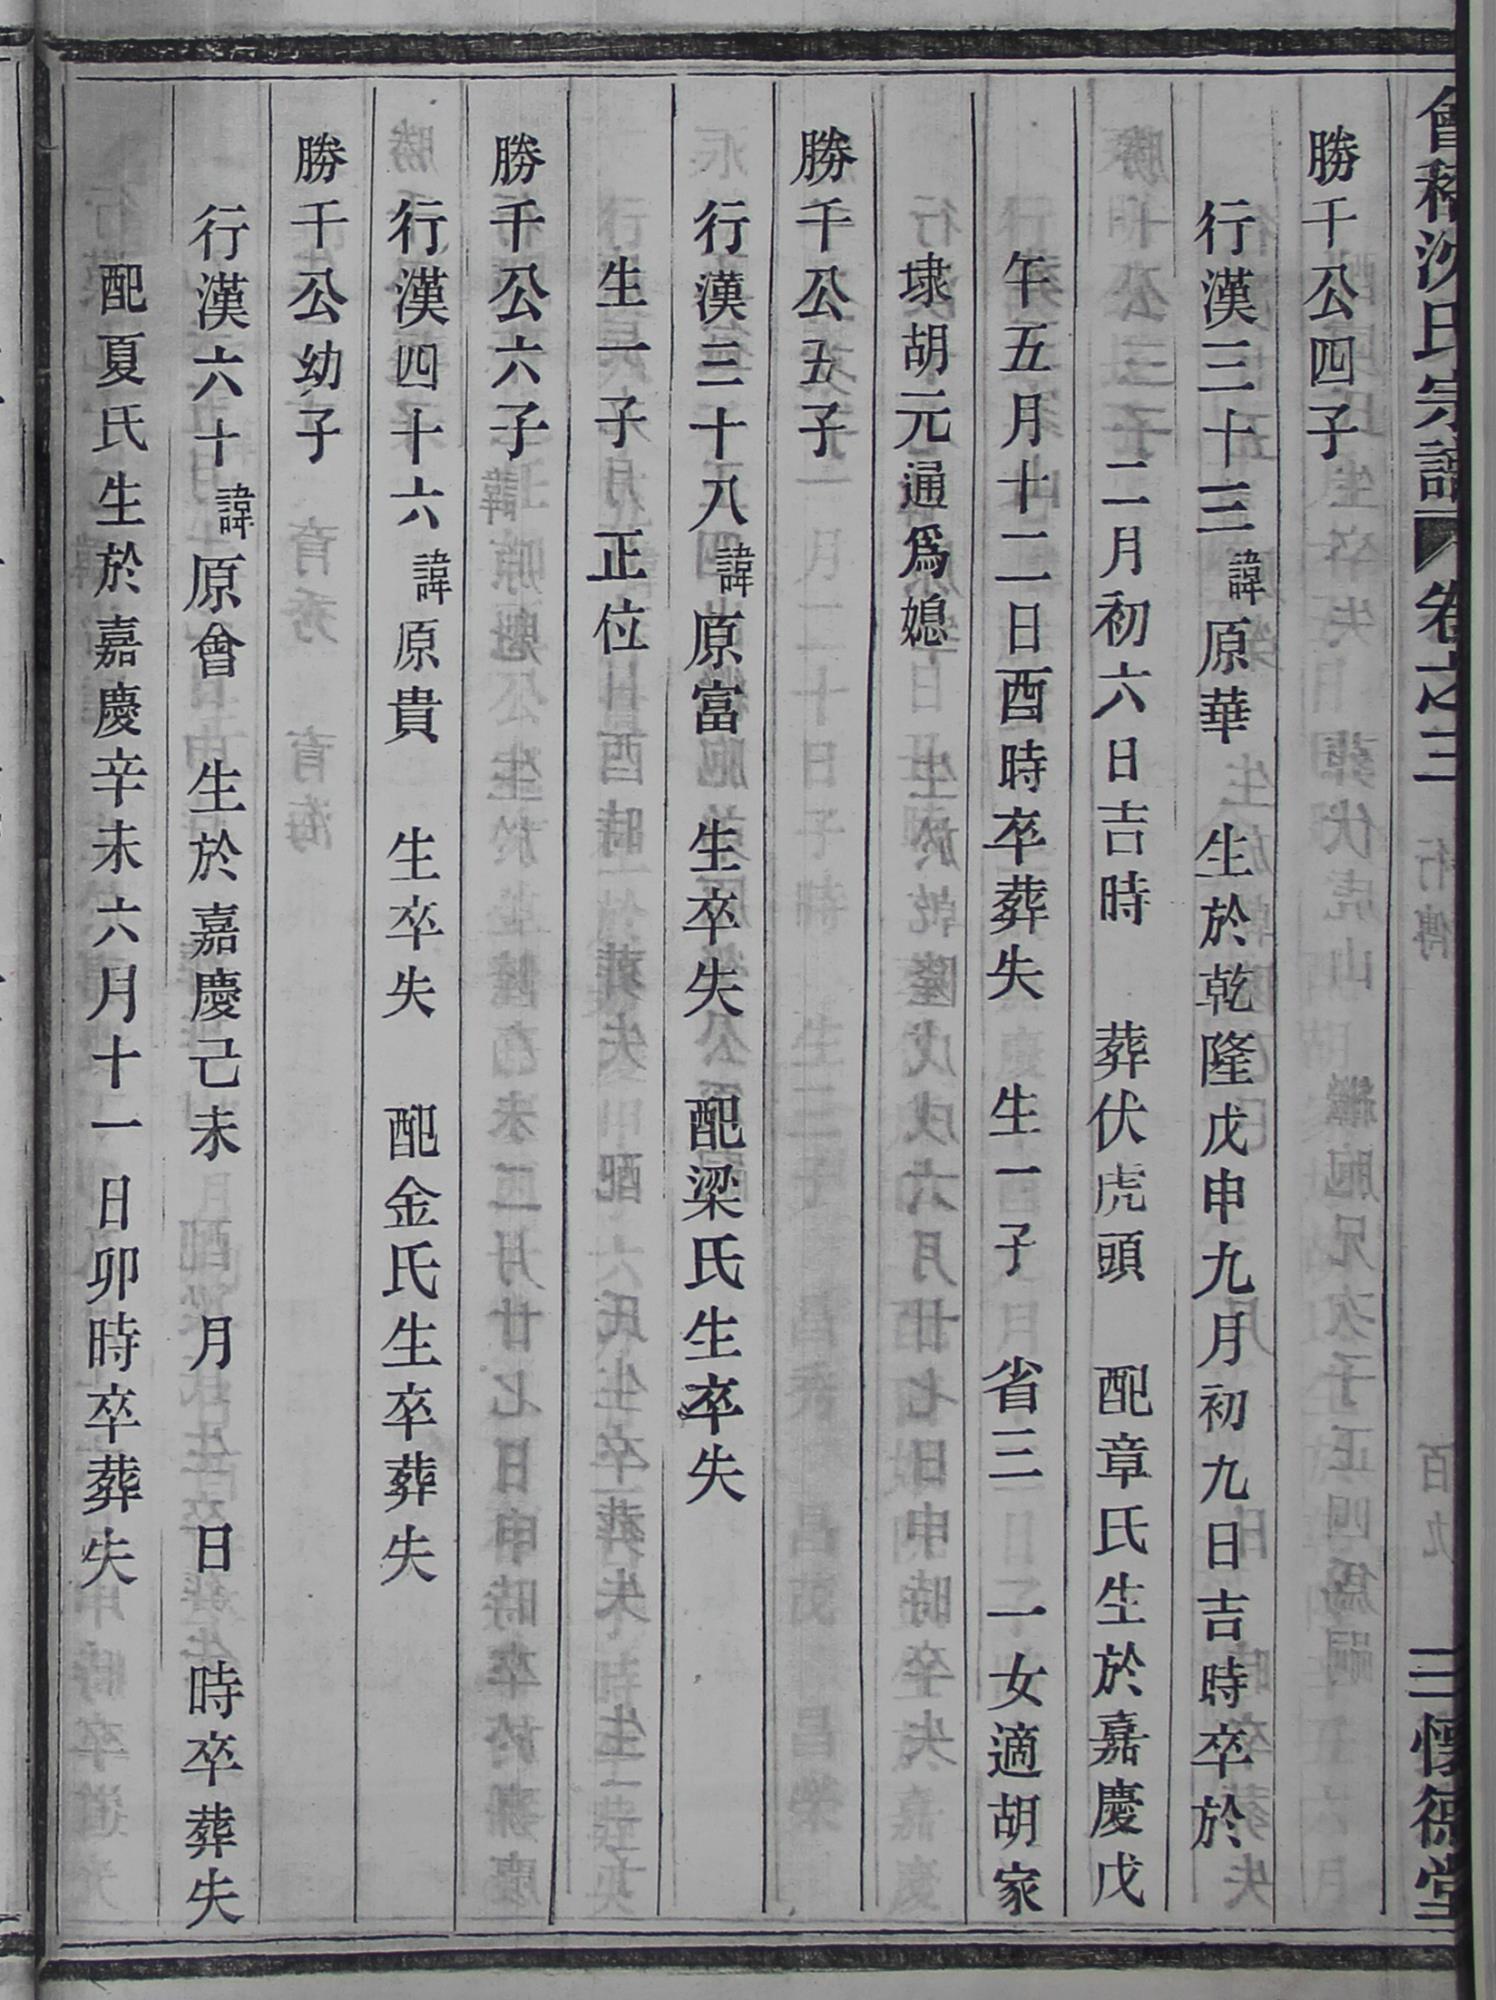 會稽沈氏宗譜 卷之三 行傳 百九 三 懷德堂
勝千公四子
行漢三十三諱原華 生於乾隆戊申九月初九日吉時卒於
二月初六日吉時 葬伏虎頭 配章氏生於嘉慶戊
午五月十二日酉時卒葬失 生一子 省三 一女適胡家
埭胡元通爲媳
勝千公五子
行漢三十八諱原富 生卒失 配梁氏生卒失
生一子 正位
勝千公六子
行漢四十六諱原貴 生卒失 配金氏生卒葬失
勝千公幼子
行漢六十諱原會 生於嘉慶己未 月 日 時卒葬失
配夏氏生於嘉慶辛未六月十一日卯時卒葬失